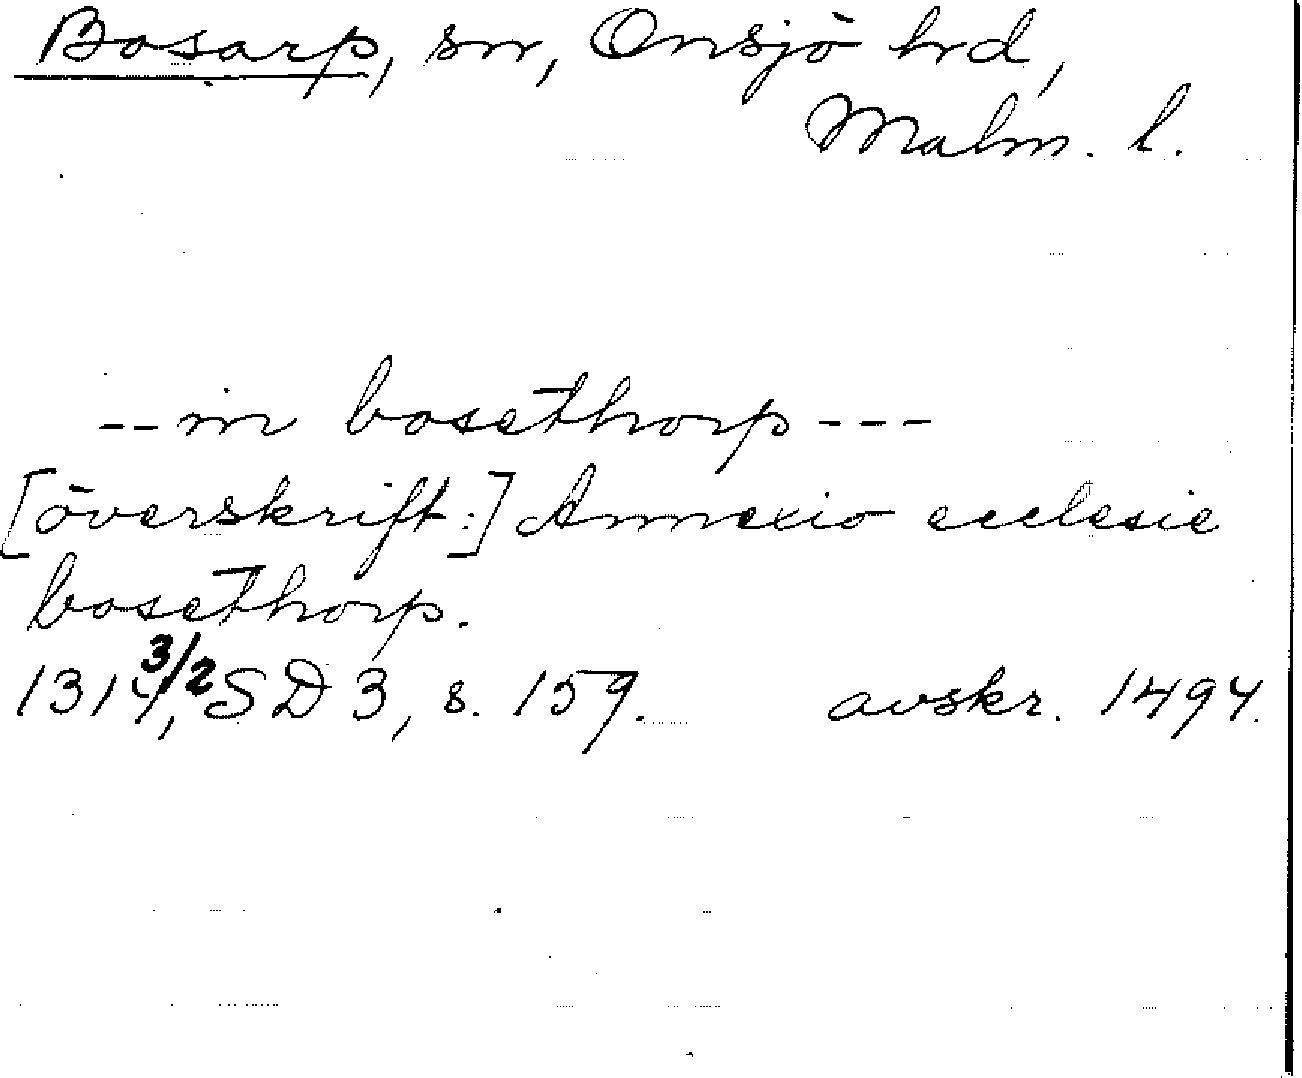 Bosarp, sn, Onsjö hrd,
Malm. l.
-- in bosethorp ---
[överskrift:] Annexio ecclesie
bosethorp.
1314 3/2, SD 3, s. 159. avskr. 1494.